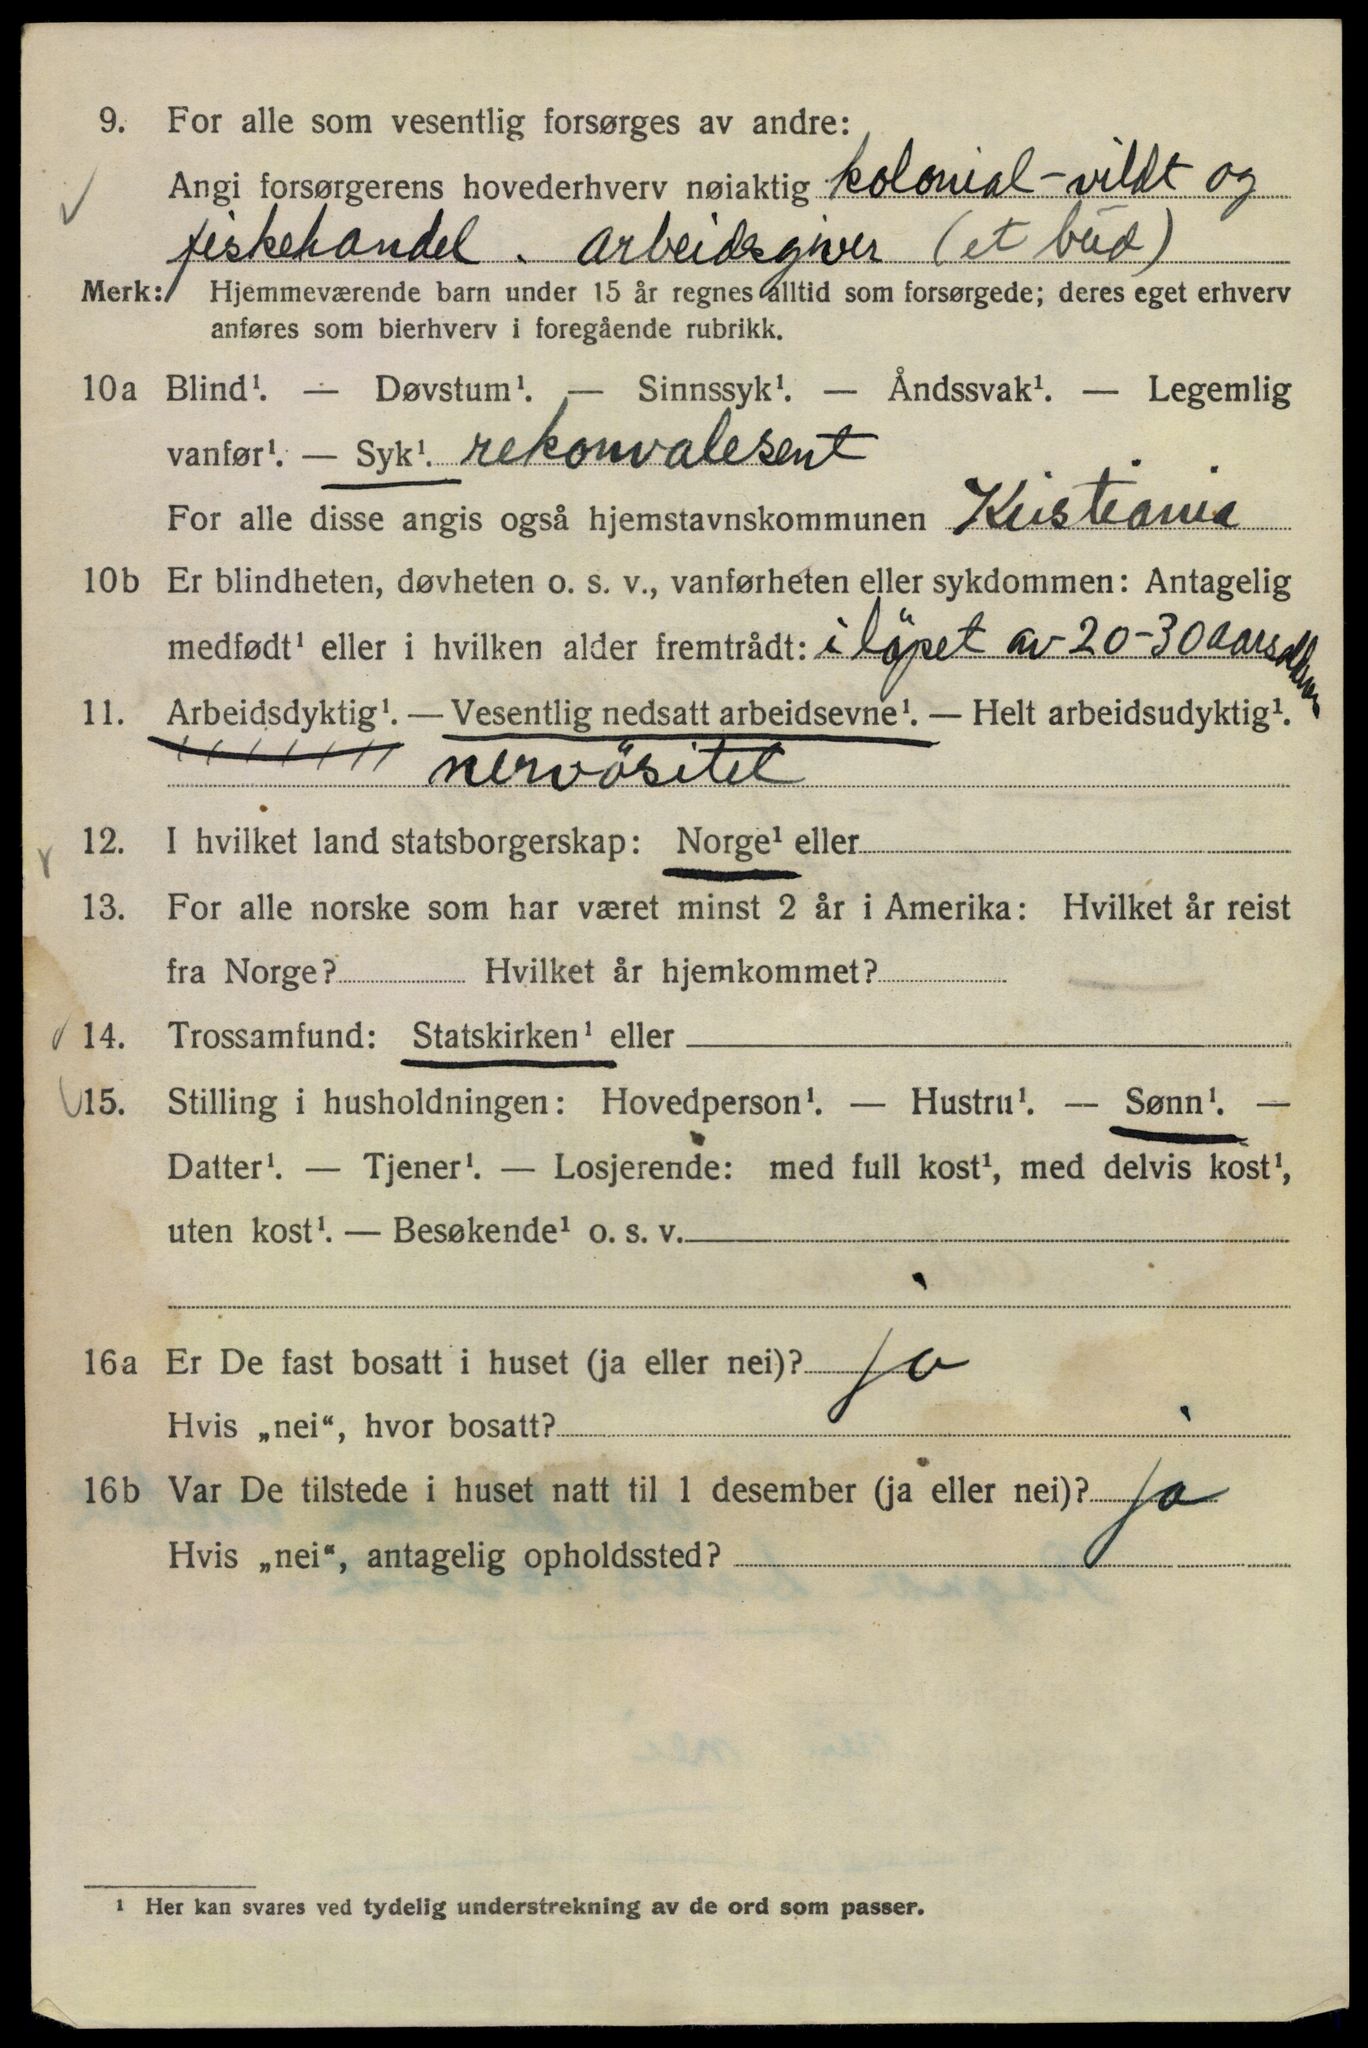 9. For alle som vesentlig forsørges av andre:
Angi forsørgerens hovederhverv nøiaktig kolonial-vildt og
fiskehandel. arbeidsgiver (et bud)
Merk: Hjemmeværende barn under 15 år regnes alltid som forsørgede; deres eget erhverv
anføres som bierhverv i foregående rubrikk.
10a Blind¹. — Døvstum¹. — Sinnssyk¹. — Åndssvak¹. — Legemlig
vanfør¹. — Syk¹. rekonvalesent
For alle disse angis også hjemstavnskommunen Kristiania
10b Er blindheten, døvheten o. s. v., vanførheten eller sykdommen: Antagelig
medfødt¹ eller i hvilken alder fremtrådt: i løpet av 20-30 aarsalderen
11. Arbeidsdyktig¹. — Vesentlig nedsatt arbeidsevne¹. — Helt arbeidsudyktig¹.
nervösitet
12. I hvilket land statsborgerskap: Norge¹ eller
13. For alle norske som har været minst 2 år i Amerika: Hvilket år reist
fra Norge? Hvilket år hjemkommet?
14. Trossamfund: Statskirken¹ eller
15. Stilling i husholdningen: Hovedperson¹. — Hustru¹. — Sønn¹. —
Datter¹. — Tjener¹. — Losjerende: med full kost¹, med delvis kost¹,
uten kost¹. — Besøkende¹ o. s. v.
16a Er De fast bosatt i huset (ja eller nei)? ja
Hvis „nei“, hvor bosatt?
16b Var De tilstede i huset natt til 1 desember (ja eller nei)? ja
Hvis „nei“, antagelig opholdssted?
¹ Her kan svares ved tydelig understrekning av de ord som passer.